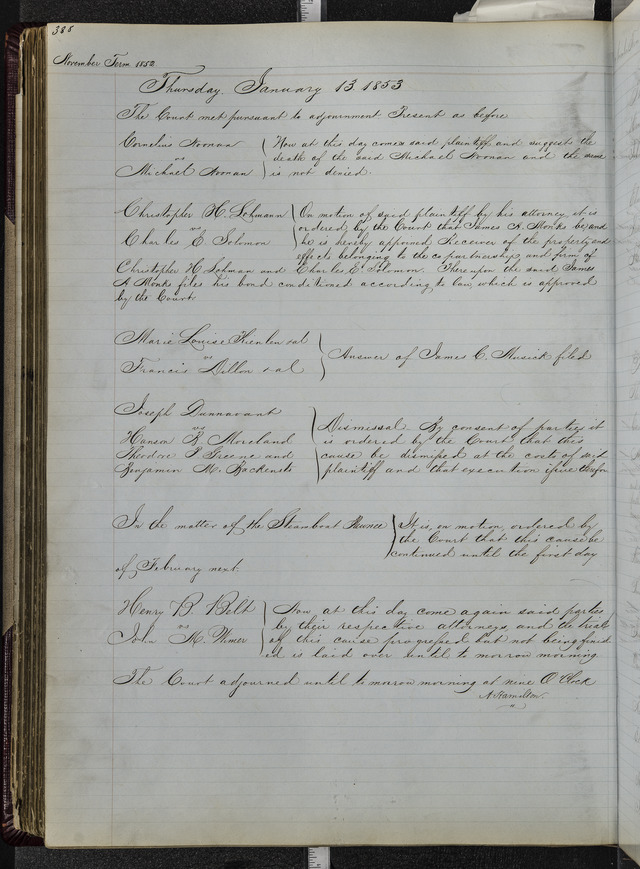 388
November Term 1852
Thursday, January 13 1853
The Court met pursuant to adjournment Present as before
Cornelius Noonan
vs
Michael Noonan
Now at this day comes said plaintiff and suggests the
death of the said Michael Noonan and the same
is not denied.
Christopher H. Lohmann
vs
Charles E. Solomon
On motion of said plaintiff by his attorney it is
ordered by the Court that James A. Monks be, and
he is hereby appoined Receiver of the property and
effects belonging to the copartnership and firm of
Christopher H Lohman and Charles E Solomon. Thereupon the said James
A Monks files his bond conditioned according to law, which is approved
by the Court
Marie Louise et al
vs
Francis Dillon et al
Answer of James C. Musick filed
Joseph Dunnavant
vs
Hanson R. Moreland
Theodore P Greene and
Benjamin M. Backensto
Dismissal. By consent of parties it
is ordered by the Court that this
cause be dismissed at the costs of said
plaintiff and that execution issue therefor
In the matter of the Steamboat
It is, on motion, ordered by
the Court that this cause be
continued until the first day
of February next.
Henry B Belt
vs
John M. Wimer
Now at this day come again said parties
by their respective attorneys, and the trial
of this cause progressed but not being finish
ed is laid over until to morrow morning
The Court adjourned until to morrow morning at nine O Clock
A Hamilton